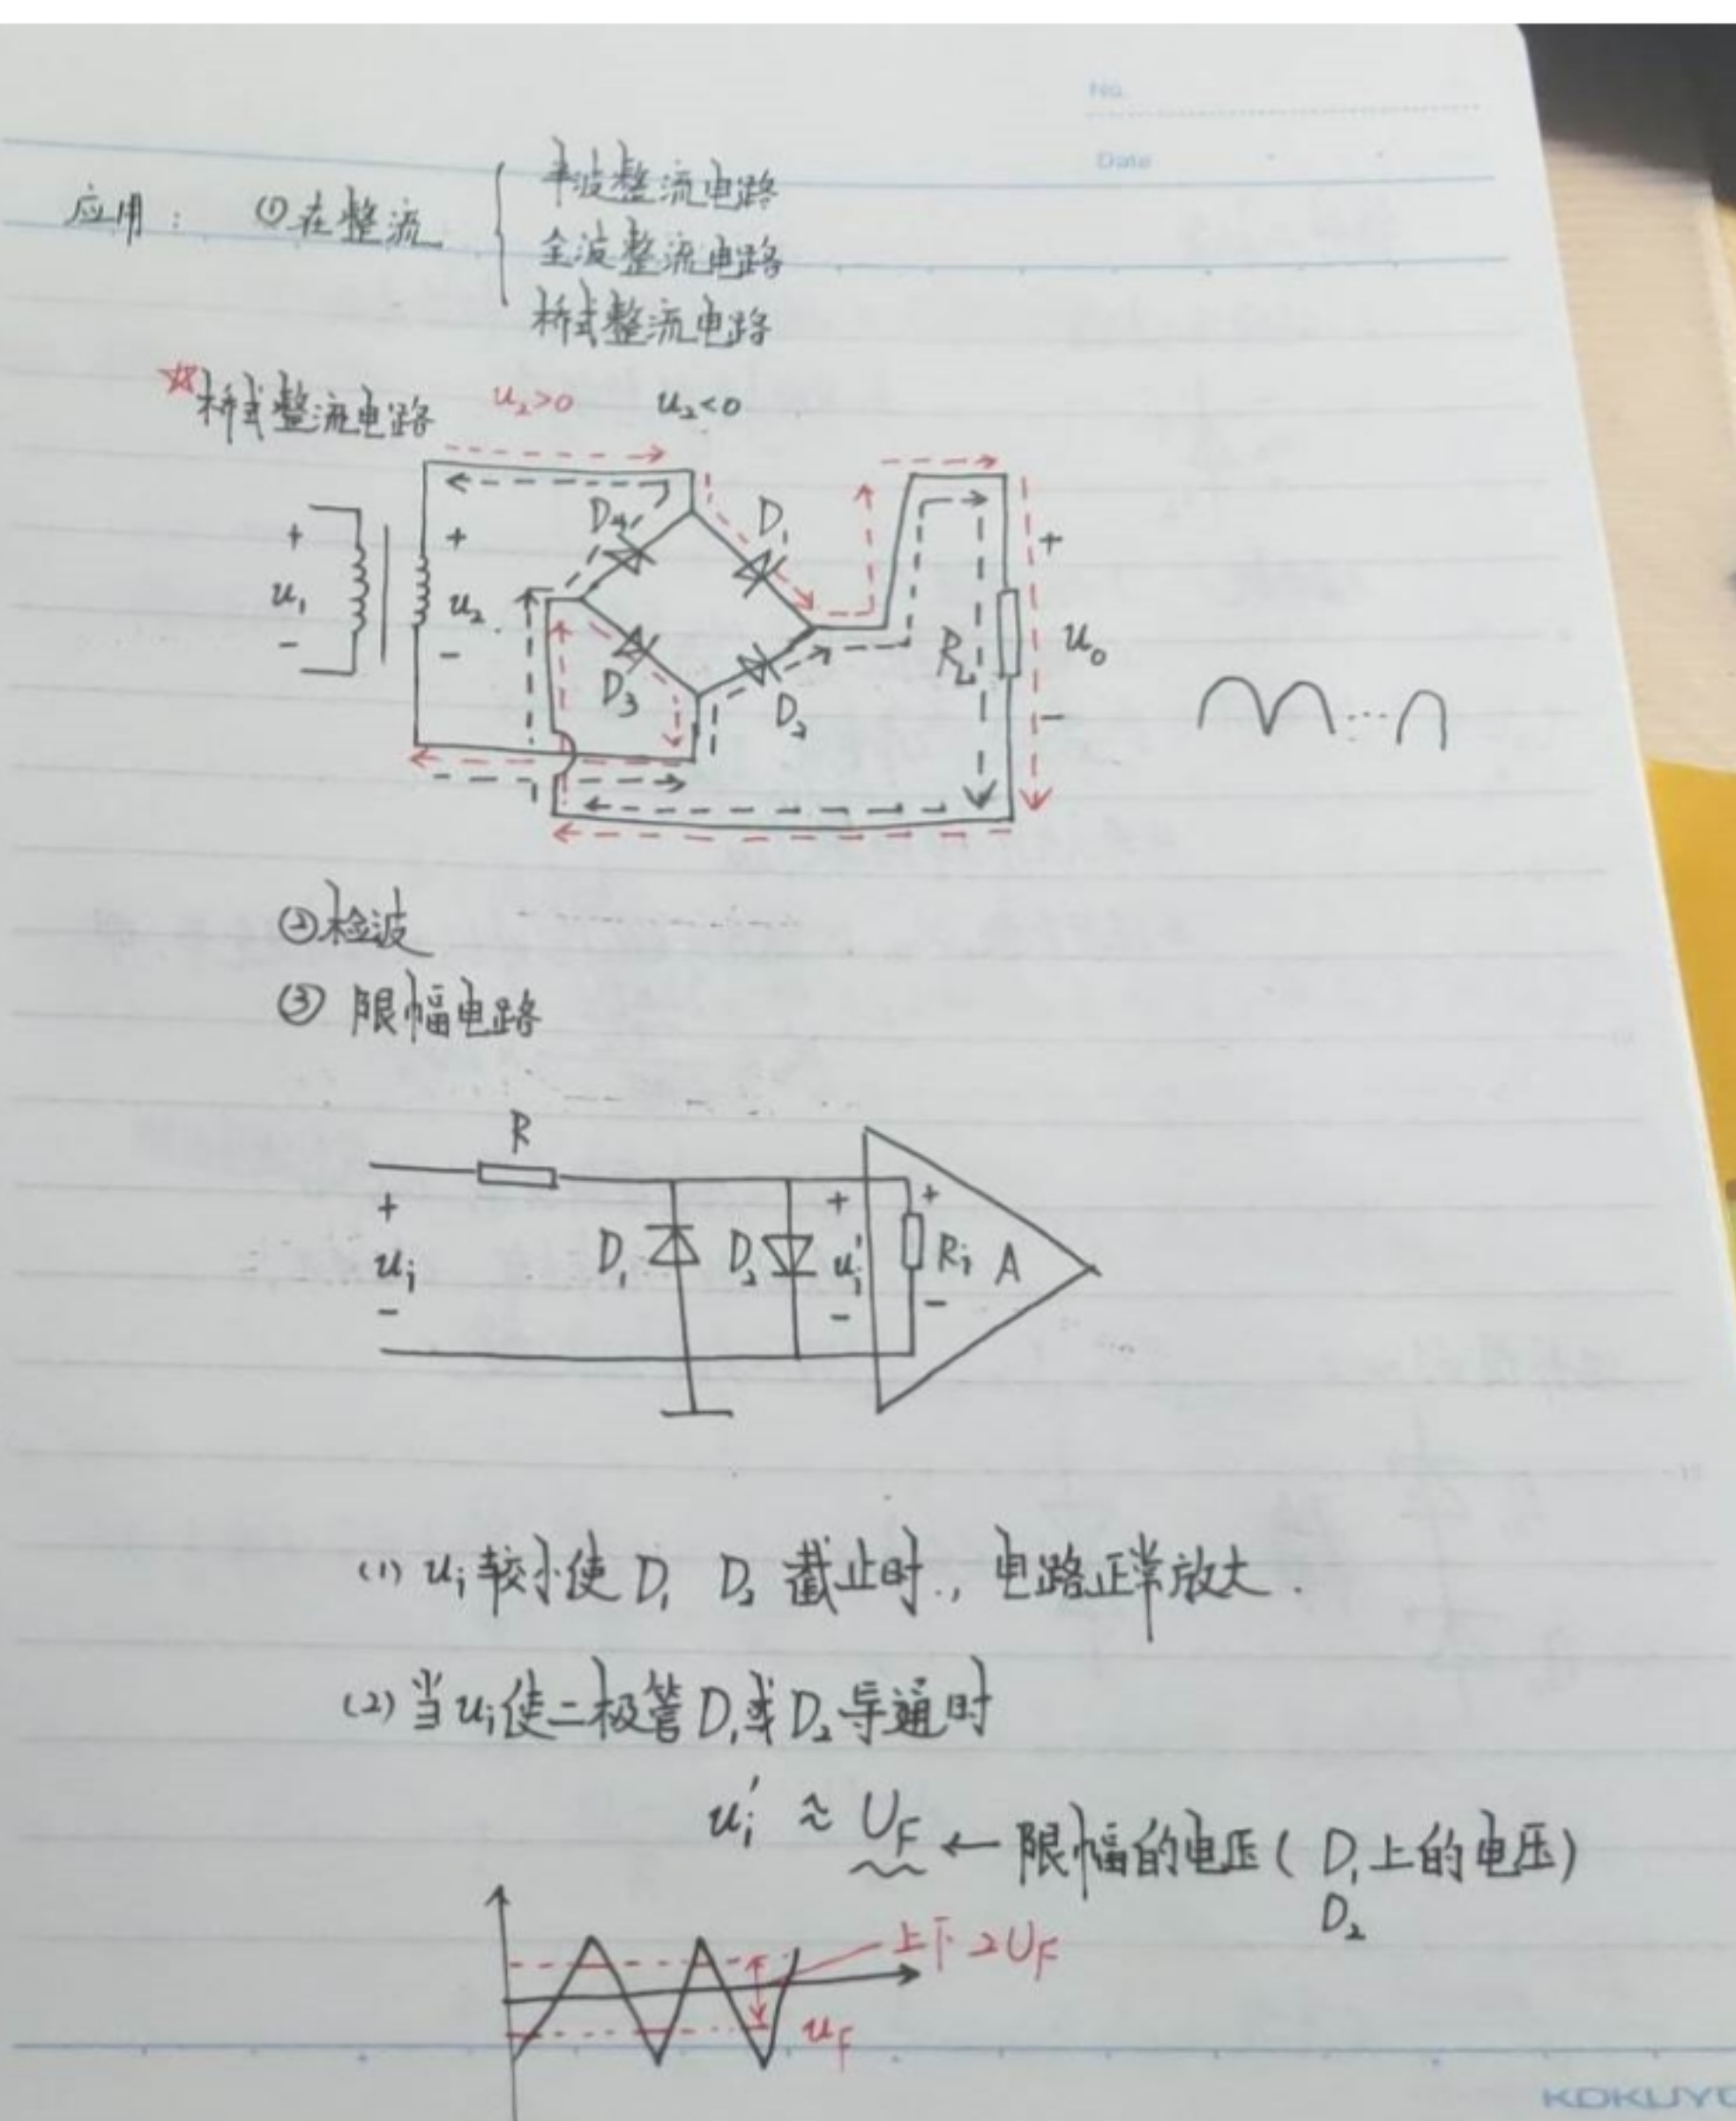 No.
Date
应用： ①在整流
半波整流电路
全波整流电路
桥式整流电路
☆桥式整流电路 u₂>0 u₂<0
D₄ D₁
+ + +
u₁ u₂ R_L u₀
- - -
D₃ D₂
②检波
③ 限幅电路
R
+ + +
u_i D₁ D₂ u_i' R_i A
- - -
(1) u_i 较小使 D₁ D₂ 截止时., 电路正常放大.
(2) 当u_i使二极管D₁或D₂导通时
u_i' ≈ U_F ← 限幅的电压( D₁上的电压)
D₂
上下2U_F
u_F
KOKUYO